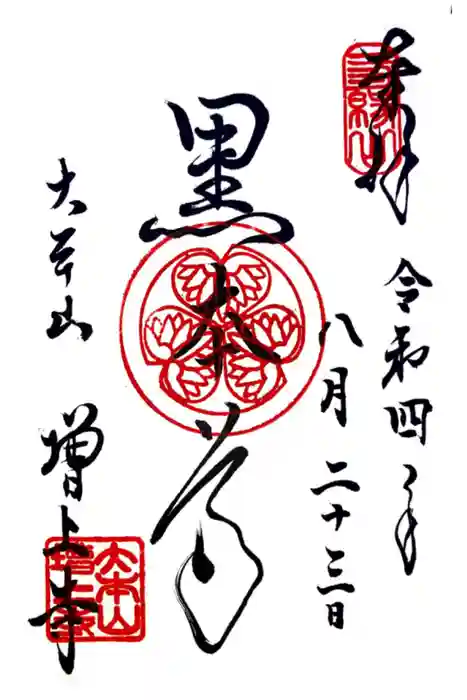 奉拝
令和四年
八月二十三日
黒本尊
大本山
増上寺
三縁山
大本山
増上寺